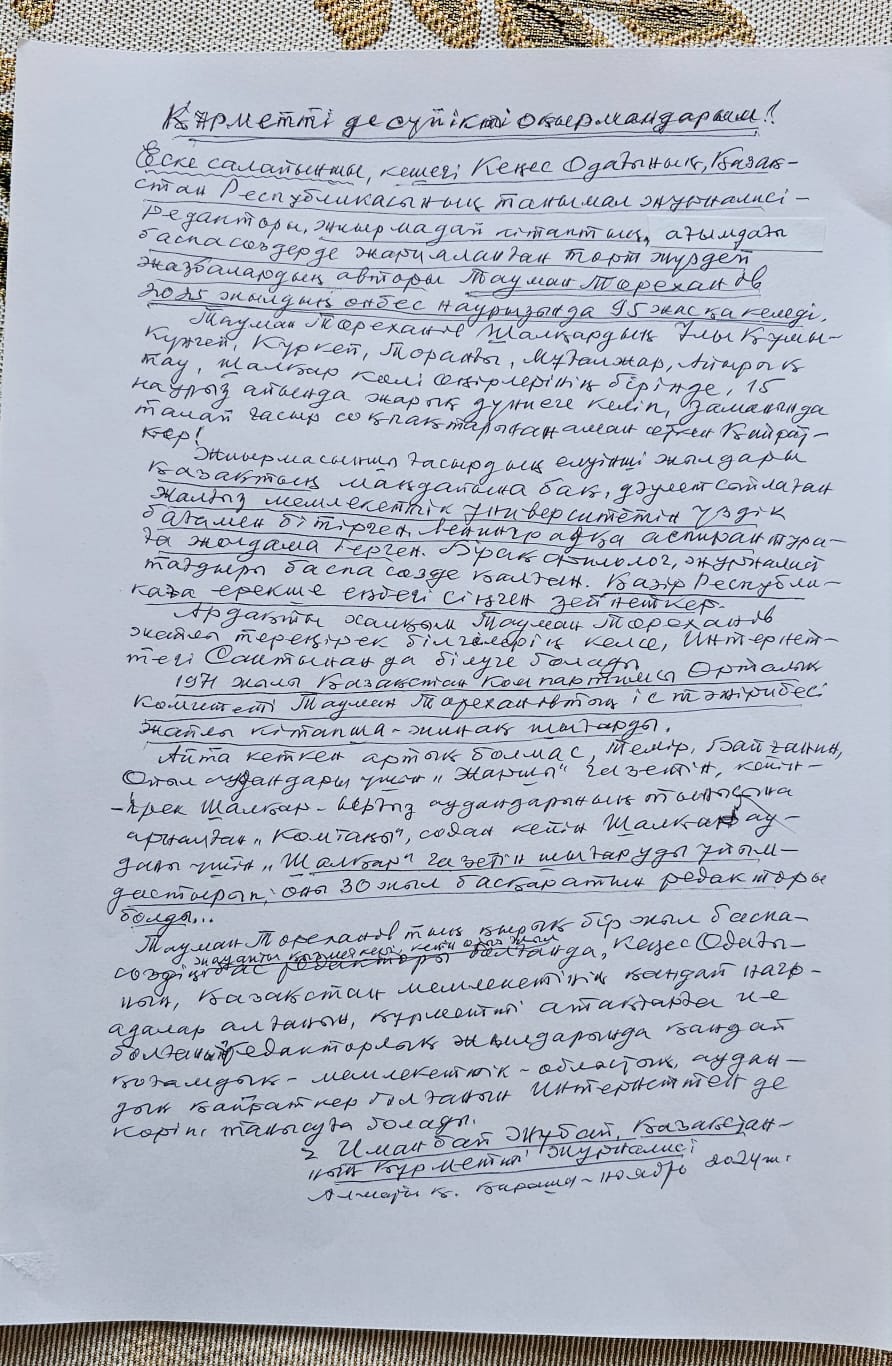 Құрметті де сүйікті оқырмандарым!
Еске салайыншы, кешегі Кеңес Одағының, Қазақ-
стан Республикасының танымал журналисі-
редакторы, жиырмадай кітаптың, ағымдағы
баспасөздерде жарияланған төрт жүрдей
жазбалардың авторы Тауман Төреханов
2025 жылдың онбес наурызында 95 жасқа келеді.
Тауман Төреханов Шалқардың Ұлы Құмы-
Күнгей, Күркей, Торанғы, Мұғалжар, Айырық
тау, Шалқар көлі өңірлерінің бірінде, 15
наурыз айында жарық дүниеге келіп, заманында
талай ғасыр соқпақтарынан аман өткен Қайрат-
кер!
Жиырмасыншы ғасырдың елуінші жылдары
қазақтың маңдайына бақ, дәулет сыйлаған
жалғыз мемлекеттік университетін үздік
бағамен бітірген. Ленинградқа аспирантура-
ға жолдама берген. Бірақ филолог, журналист
тағдыры баспасөзде қалған. Қазір Республи-
каға ерекше еңбегі сіңген зейнеткер.
Ардақты халқым Тауман Төреханов
жайлы тереңірек білгілерің келсе, Интернет-
тегі Сайтынан да білуге болады
1971 жылы Қазақстан Компартиясы Орталық
Комитеті Тауман Төрехановтың іс тәжірибесі
жайлы кітапша-жинақ шығарды.
Айта кеткен артық болмас, Темір, Байғанин,
Ойыл аудандары үшін "Жаршы" газетін, кейін-
-ірек Шалқар- аудандарының тынысына
арналған "Комтаңы", содан кейін Шалқар ау-
даны үшін "Шалқар" газетін шығаруды ұйым-
дастырып, оны 30 жыл басқаратын редакторы
болды...
Тауман Төрехановтың қырық бір жыл баспа-
сөздің жауапты қызметкері, кейін отыз жыл
бас редакторы болғанда, Кеңес Одағы-
ның, Қазақстан мемлекетінің қандай нагр-
адалар алғанын, құрметті атақтарға ие
болғанын редакторлық жылдарында қандай
қоғамдық-мемлекеттік-облыстық, аудан-
дық қайраткер болғанын Интернеттен де
көріп, танысуға болады.
Иманбай Жұбай, Қазақстан-
ның Құрметті Журналисі
Алматы қ. Қараша-ноябрь 2024 ж.